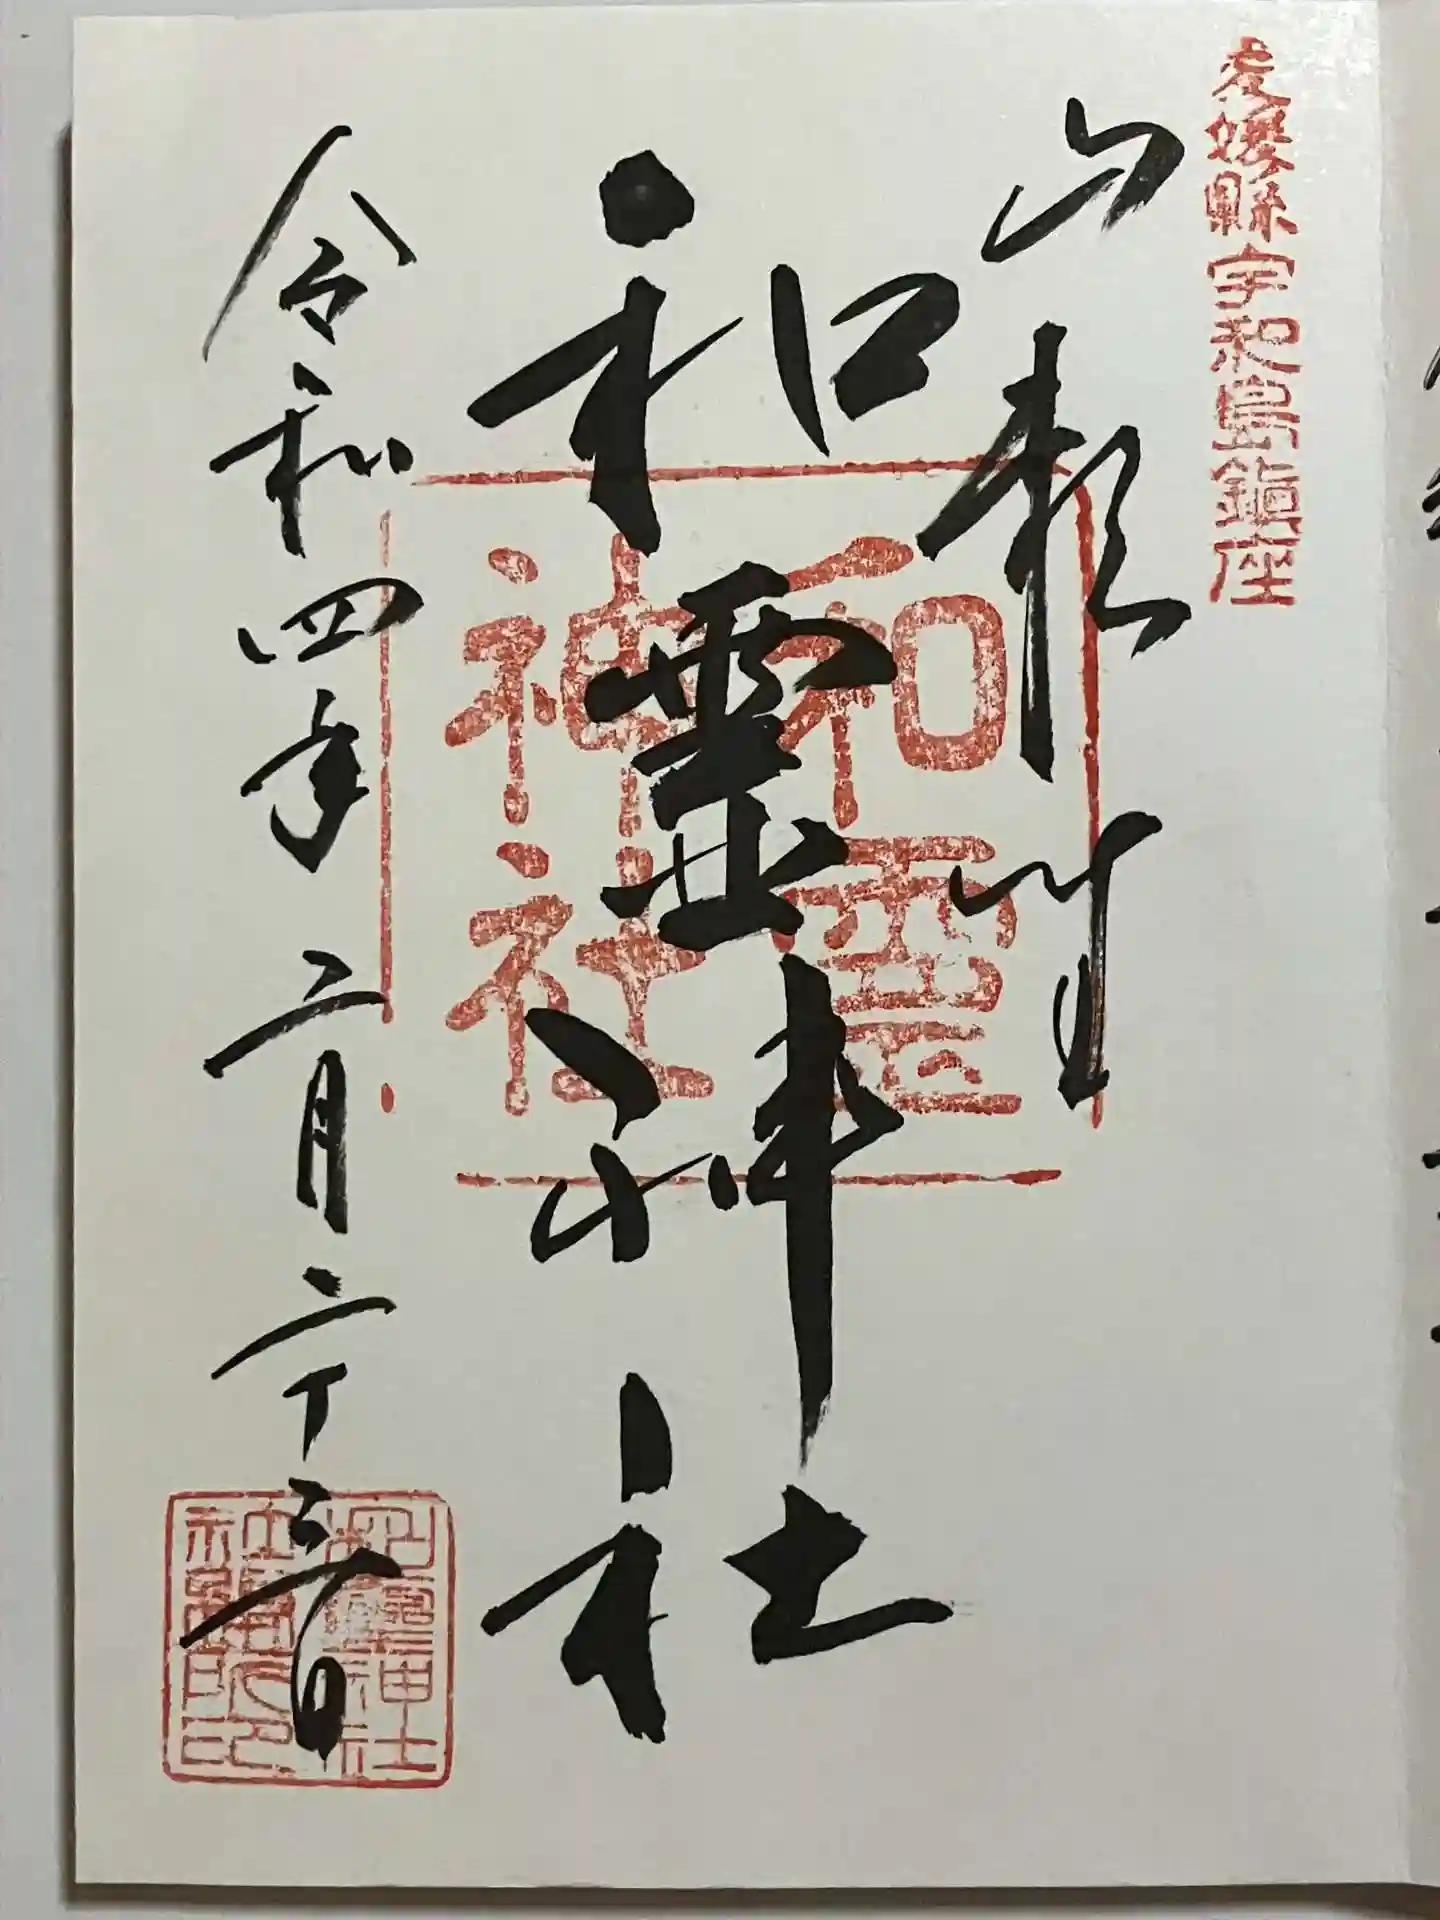 愛媛縣宇和島鎮座
山頼
和霊神社
和霊神社
令和四年二月二十三日
和霊神社
社務所印